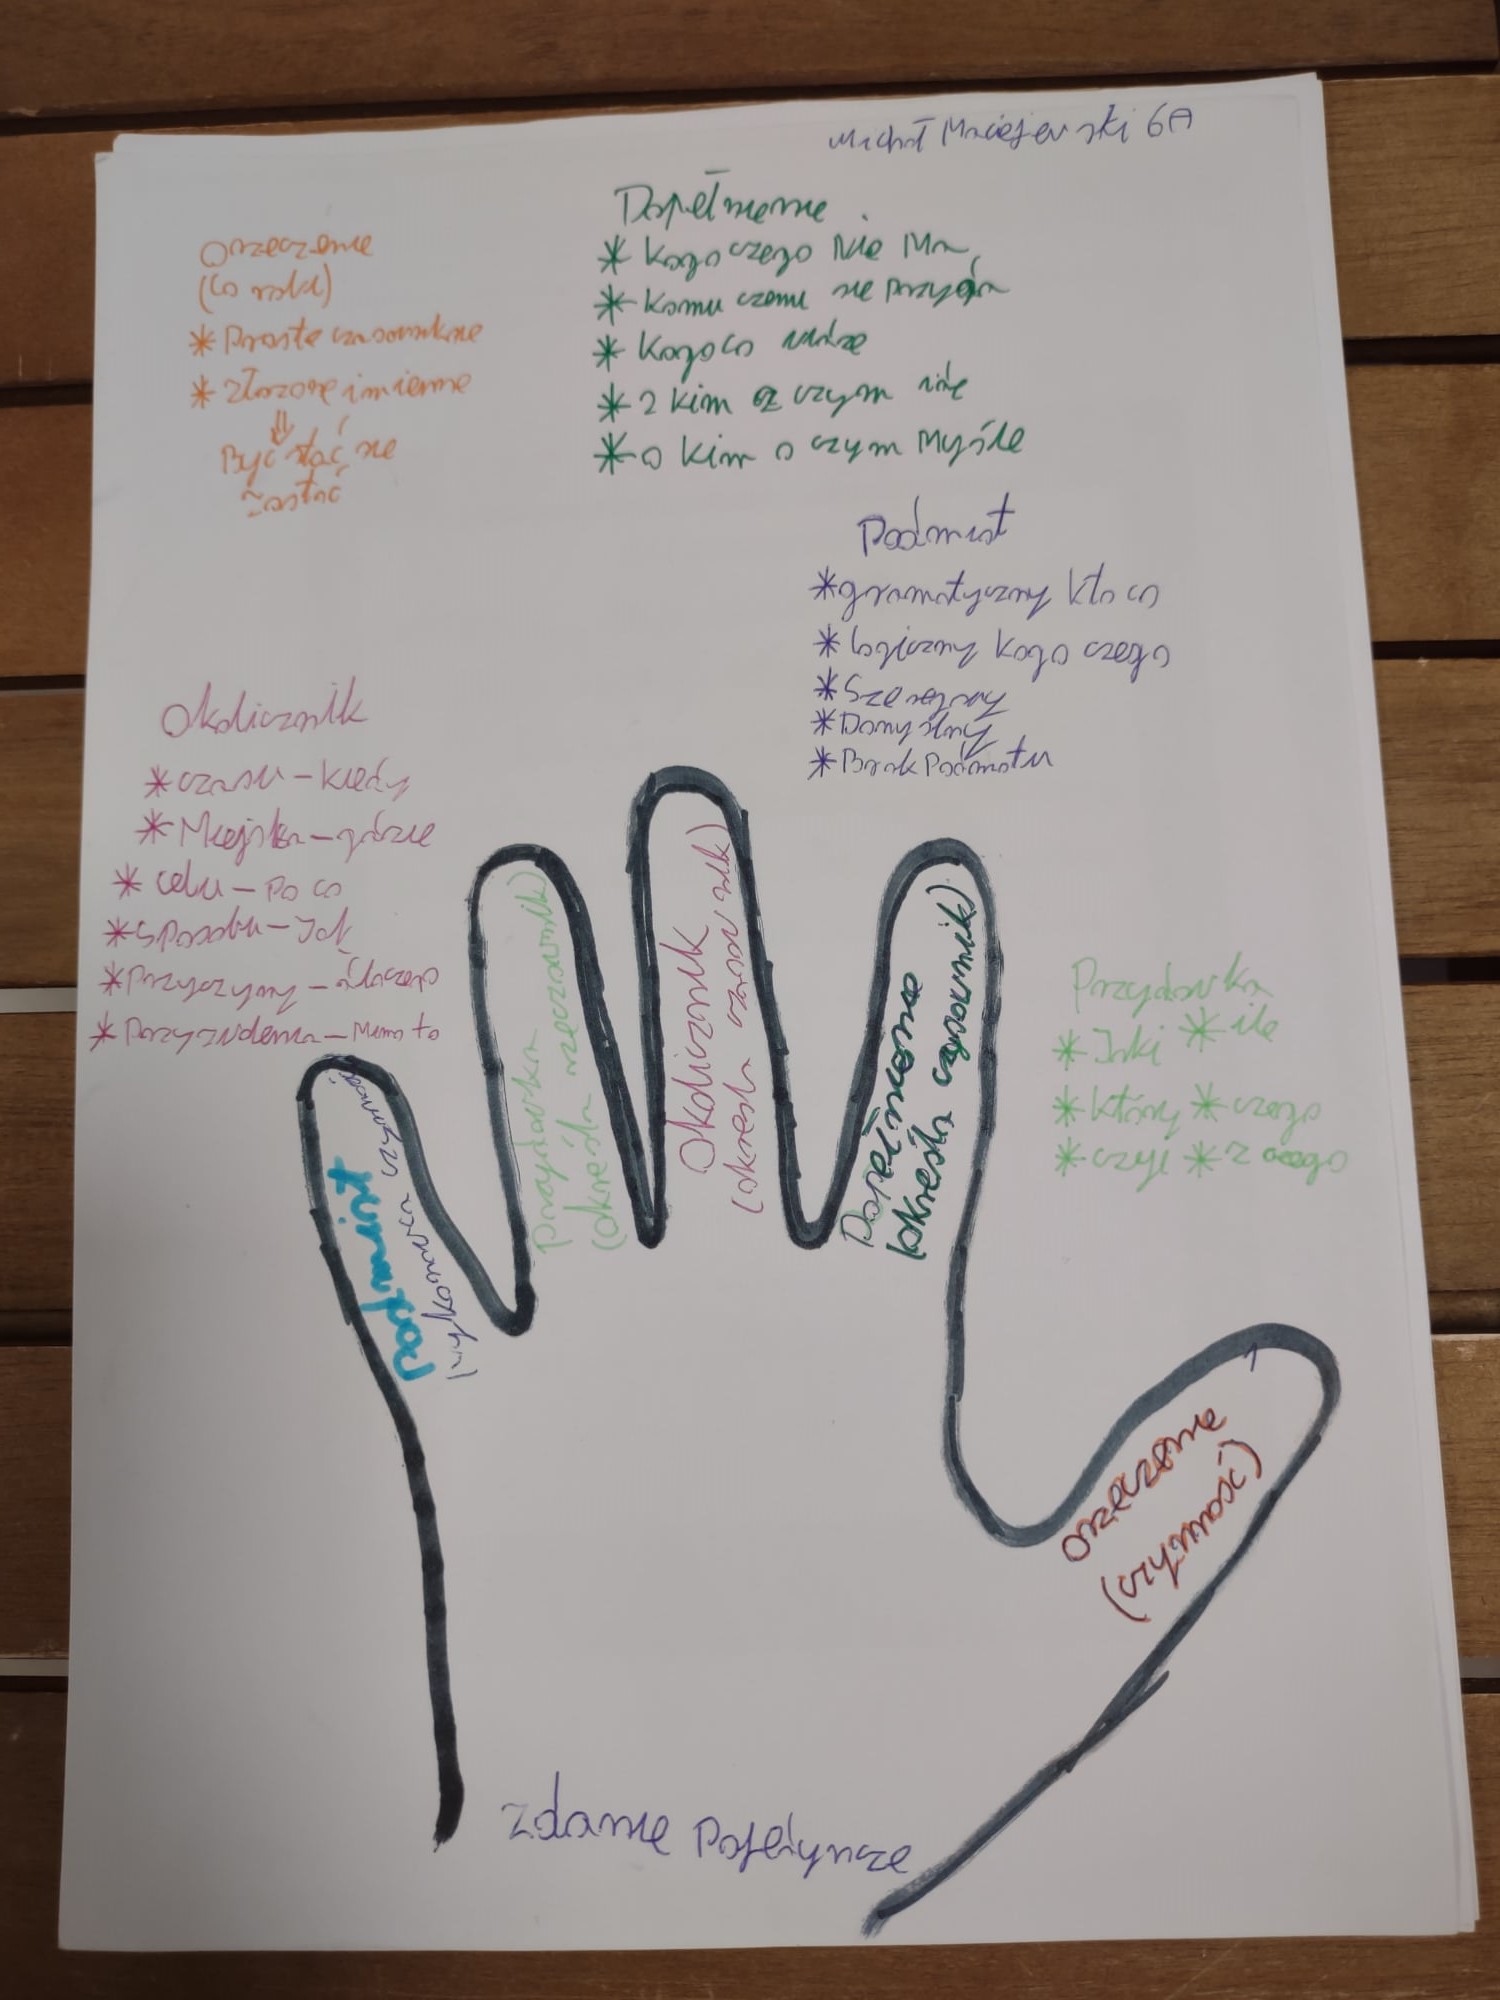 Michał Maciejewski 6A
Orzeczenie
(co robi)
* Proste czasownikowe
* złożone imienne
⇓
Być stać się
zostać
Dopełnienie
* Kogo czego Nie Ma
* Komu czemu się przyglą
* Kogo co widzę
* z kim z czym idę
* o kim o czym Myślę
Podmiot
* gramatyczny kto co
* logiczny kogo czego
* Szeregowy
* Domyślny
* Brak Podmiotu
Okolicznik
* czasu – kiedy
* Miejska – gdzie
* celu – Po co
* Sposobu – Jak
* Przyczyny – dlaczego
* Przyzwolenia – Mimo to
Przydawka
* Jaki * ile
* który * czego
* czyj * z czego
Podmiot
wykonawca czynności
Przydawka
(określa rzeczownik)
Okolicznik
(określa czasownik)
Dopełnienie
(określa czasownik)
Orzeczenie
(czynność)
Zdanie Pojedyncze